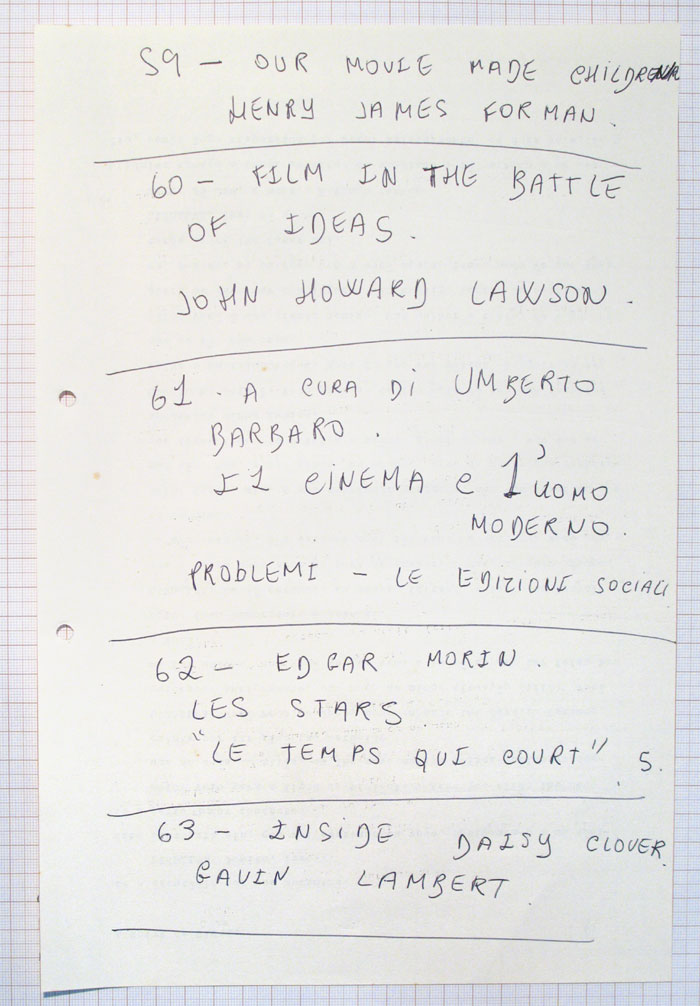 59 - OUR MOVIE MADE CHILDREN
HENRY JAMES FORMAN.
60 - FILM IN THE BATTLE
OF IDEAS.
JOHN HOWARD LAWSON.
61. A CURA DI UMBERTO
BARBARO.
Il CINEMA e l'UOMO
MODERNO.
PROBLEMI - LE EDIZIONI SOCIALI
62 - EDGAR MORIN.
LES STARS
"LE TEMPS QUI COURT". 5.
63 - INSIDE DAISY CLOVER.
GAVIN LAMBERT.